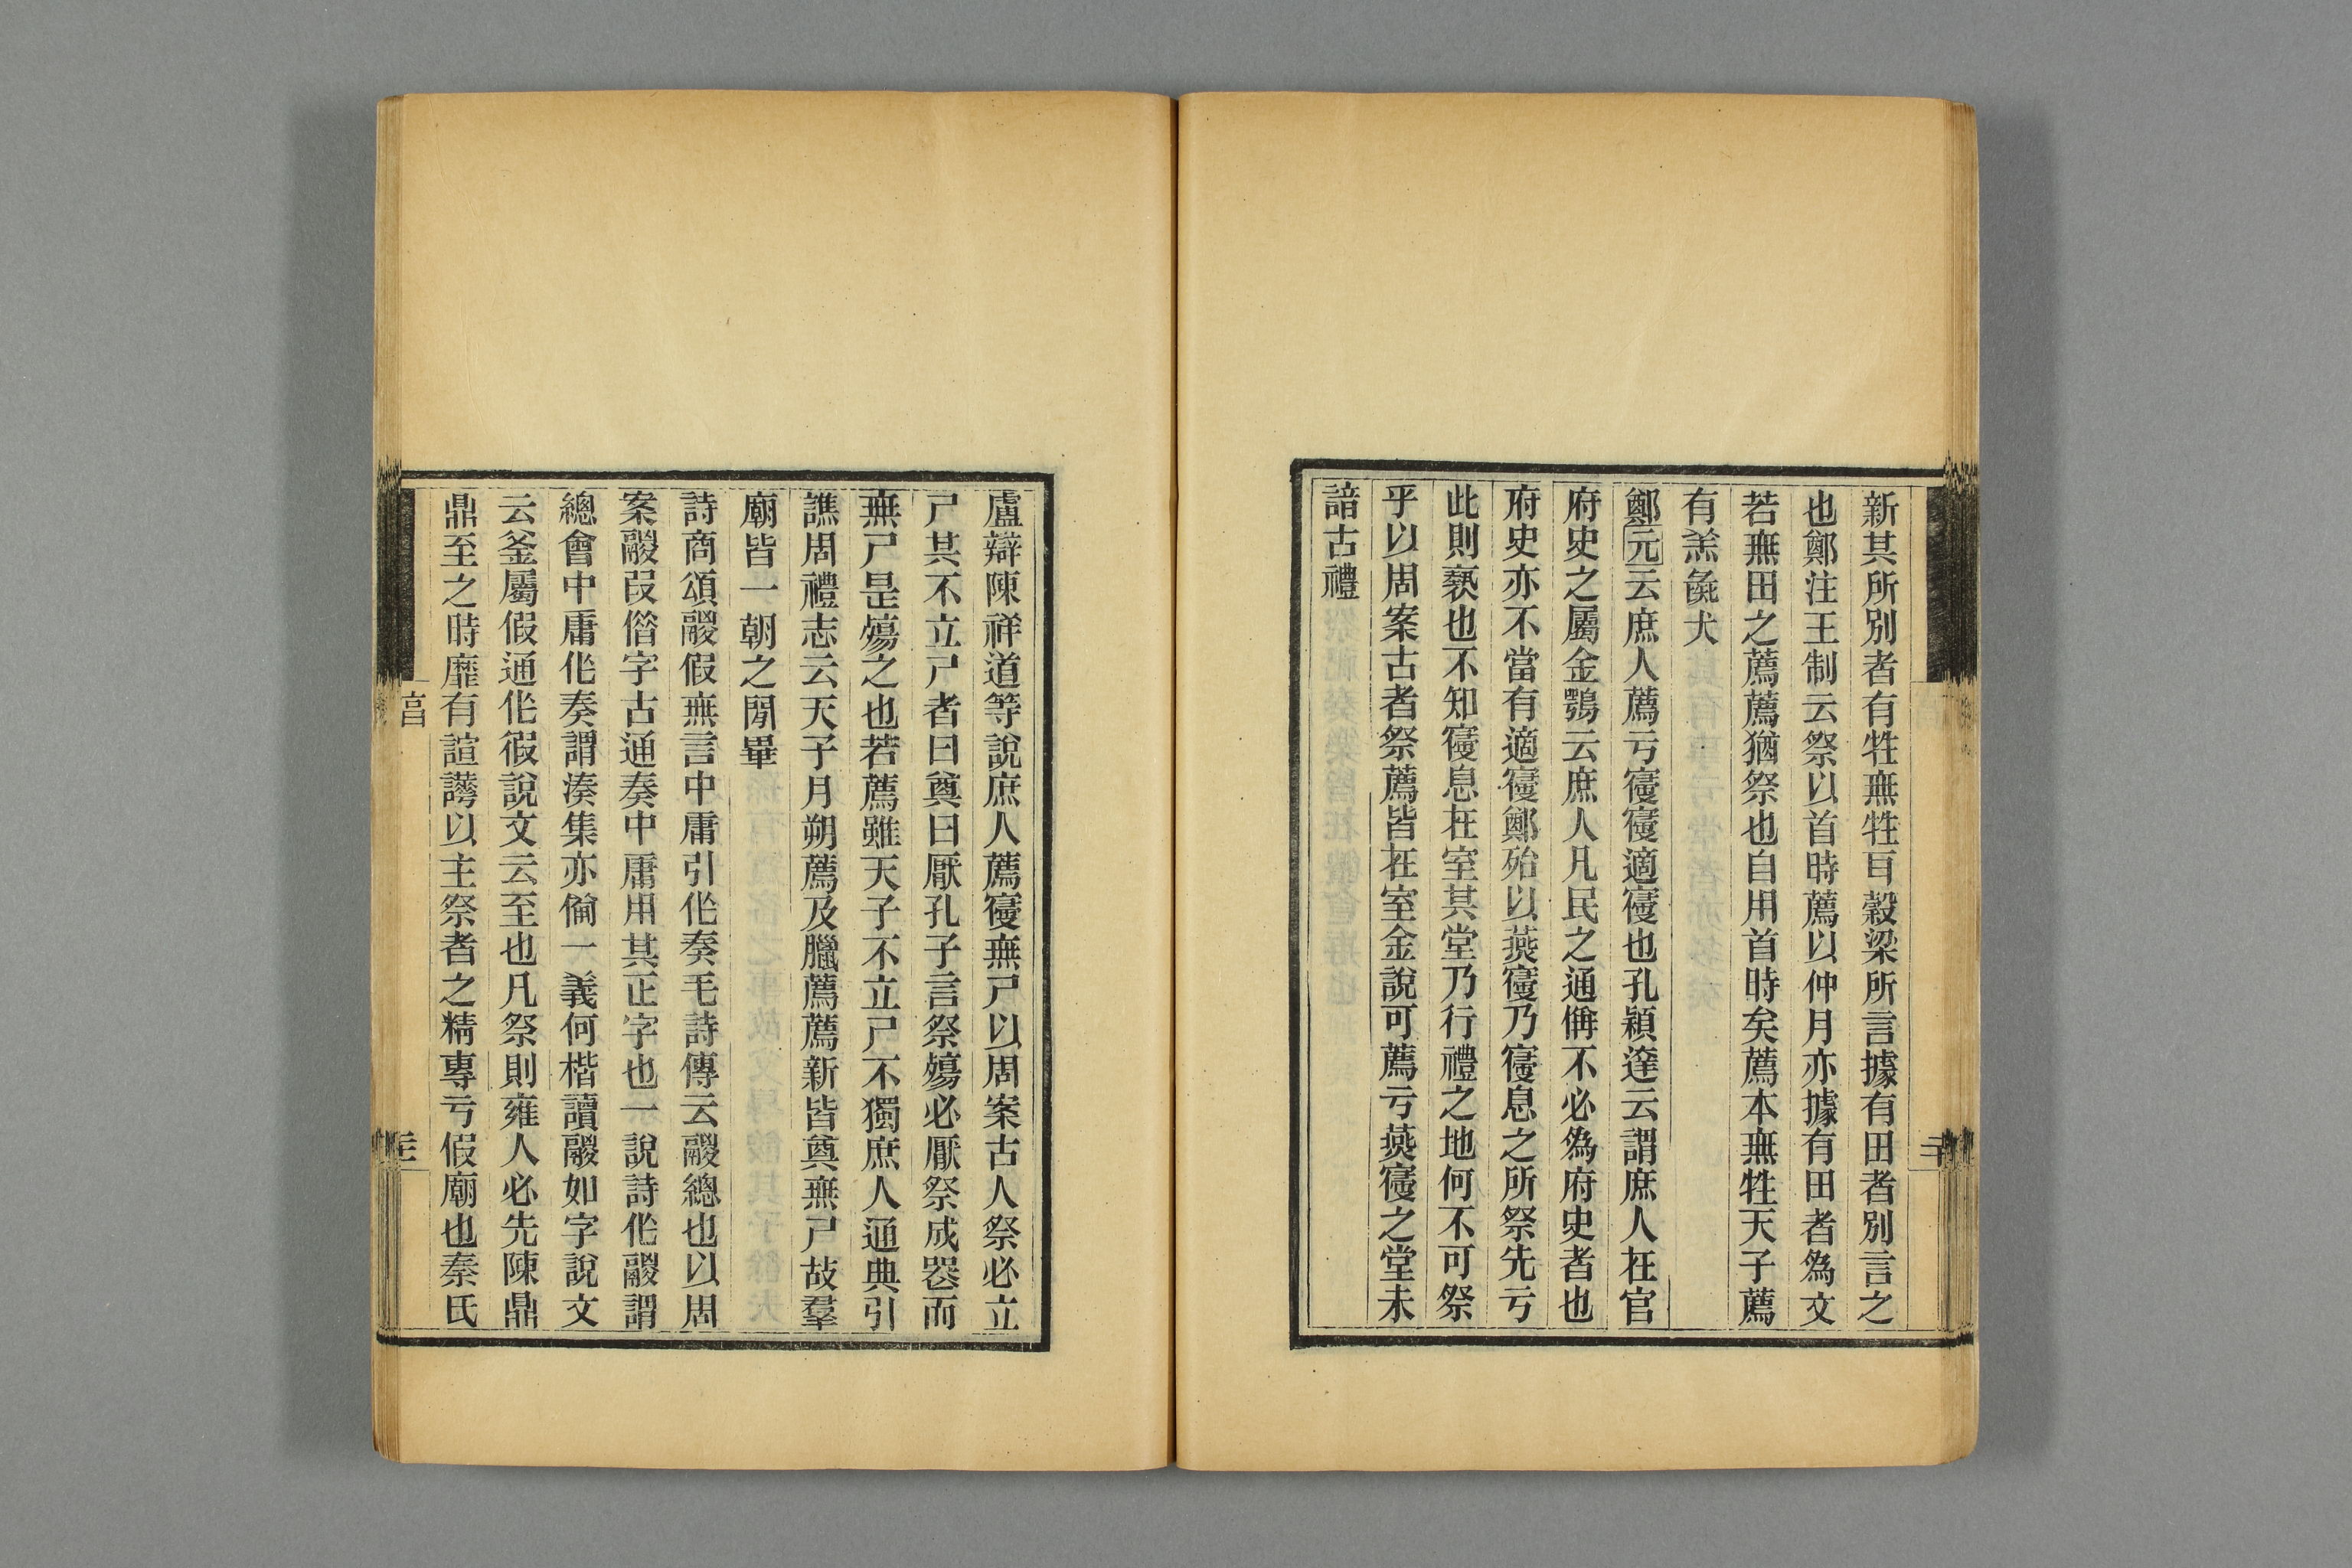 新其所別者有牲無牲耳穀梁所言據有田者別言之
也鄭注王制云祭以首時薦以仲月亦據有田者為文
若無田之薦薦猶祭也自用首時矣薦本無牲天子薦
有羔彘犬
鄭元云庶人薦亏寑寑適寑也孔穎達云謂庶人在官
府史之屬金鶚云庶人凡民之通偁不必為府史者也
府史亦不當有適寑鄭殆以燕寑乃寑息之所祭先亏
此則褻也不知寑息在室其堂乃行禮之地何不可祭
乎以周案古者祭薦皆在室金說可薦亏燕寑之堂未
諳古禮
盧辯陳祥道等說庶人薦寑無尸以周案古人祭必立
尸其不立尸者曰奠曰厭孔子言祭殤必厭祭成器而
無尸是殤之也若薦雖天子不立尸不獨庶人通典引
譙周禮志云天子月朔薦及臘薦薦新皆奠無尸故羣
廟皆一朝之閒畢
詩商頌鬷假無言中庸引作奏毛詩傳云鬷總也以周
案鬷叚偺字古通奏中庸用其正字也一說詩作鬷謂
總會中庸作奏謂湊集亦僃一義何楷讀鬷如字說文
云釜屬假通作徦說文云至也凡祭則雍人必先陳鼎
鼎至之時靡有諠譁以主祭者之精專亏假廟也秦氏